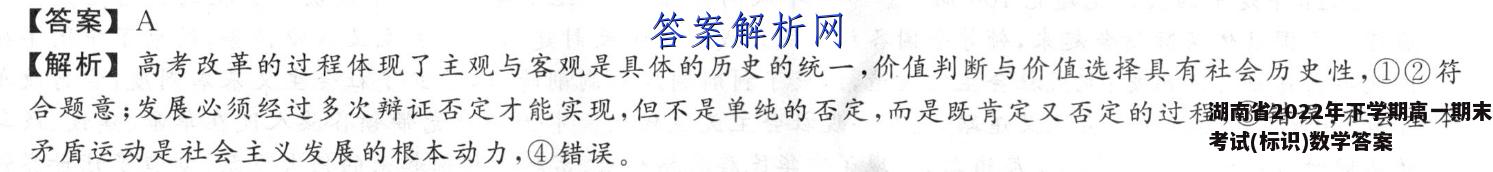 【答案】A
答案解析网
【解析】高考改革的过程体现了主观与客观是具体的历史的统一,价值判断与价值选择具有社会历史性,①②符
合题意;发展必须经过多次辩证否定才能实现,但不是单纯的否定,而是既肯定又否定的过程
湖南省2022年下学期高一期末
考试(标识)数学答案
矛盾运动是社会主义发展的根本动力,④错误。